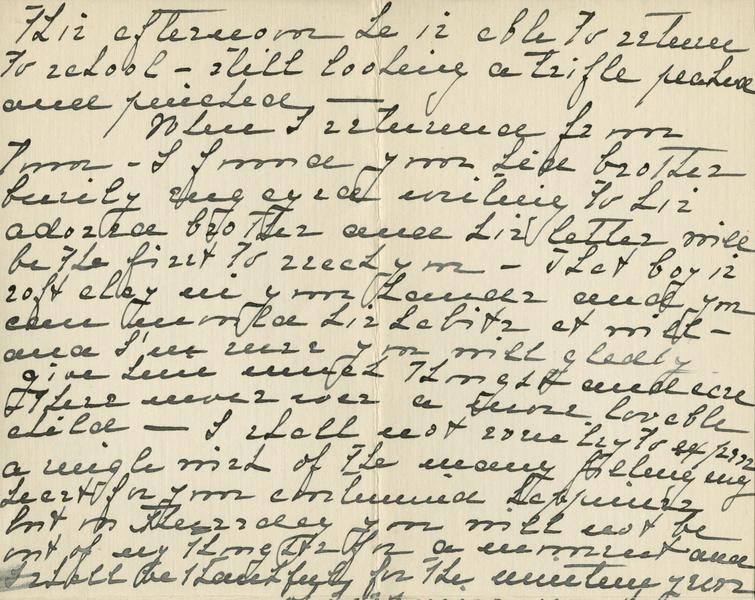 This afternoon he is able to return
to school – still looking a trifle peaked
and pinched —
When I returned from
Town – I found your kid brother
busily engaged writing to his
adored brother and his letter will
be the first to reach you – That boy is
soft clay in your hands and you
can mould his habits at will –
and I'm sure you will gladly
give him much thought and care
There never was a more lovable
child — I shall not some try to express
a single wish of the many filling my
heart for your continued happiness
but on Thursday you will not be
out of my thoughts for a moment and
I shall be thankful for the minting your